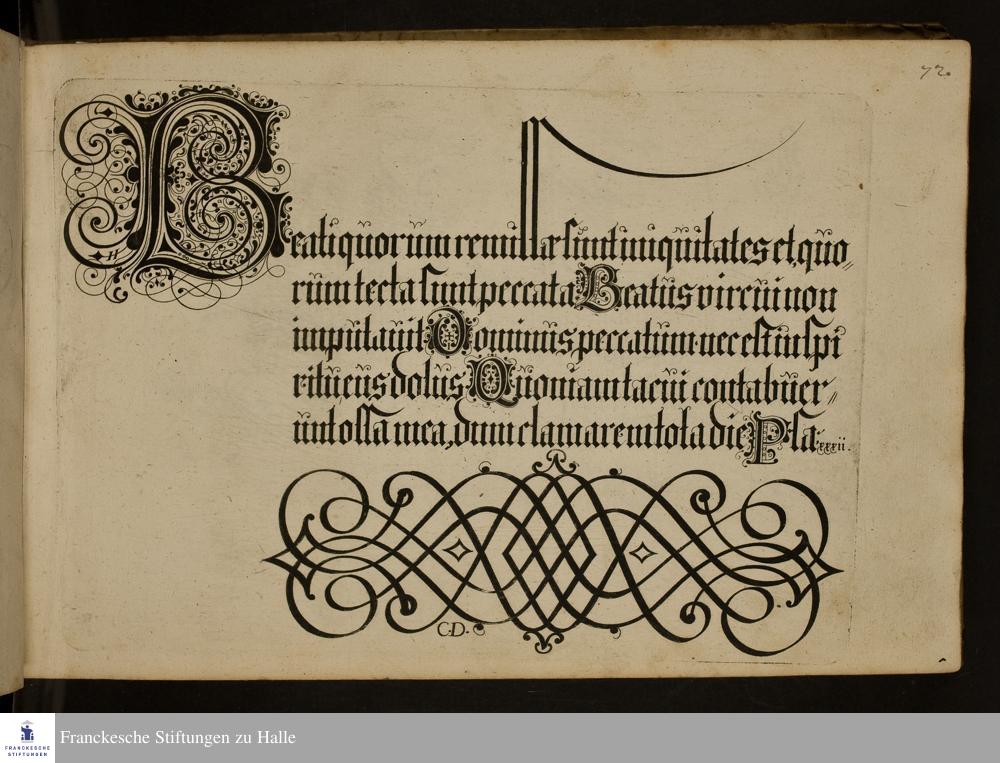 72.
Beati quorum remissæ sunt iniquitates et, quo〃
rum tecta sunt peccata Beatus vir cui non
imputavit Dominus, peccatum nec est in spi
ritu eius dolus Quoniam tacui contabuer〃
unt ossa mea, dum clamarem tota die Psa: xxxii.
H
C.D.
Franckesche Stiftungen zu Halle
FRANCKESCHE
STIFTUNGEN